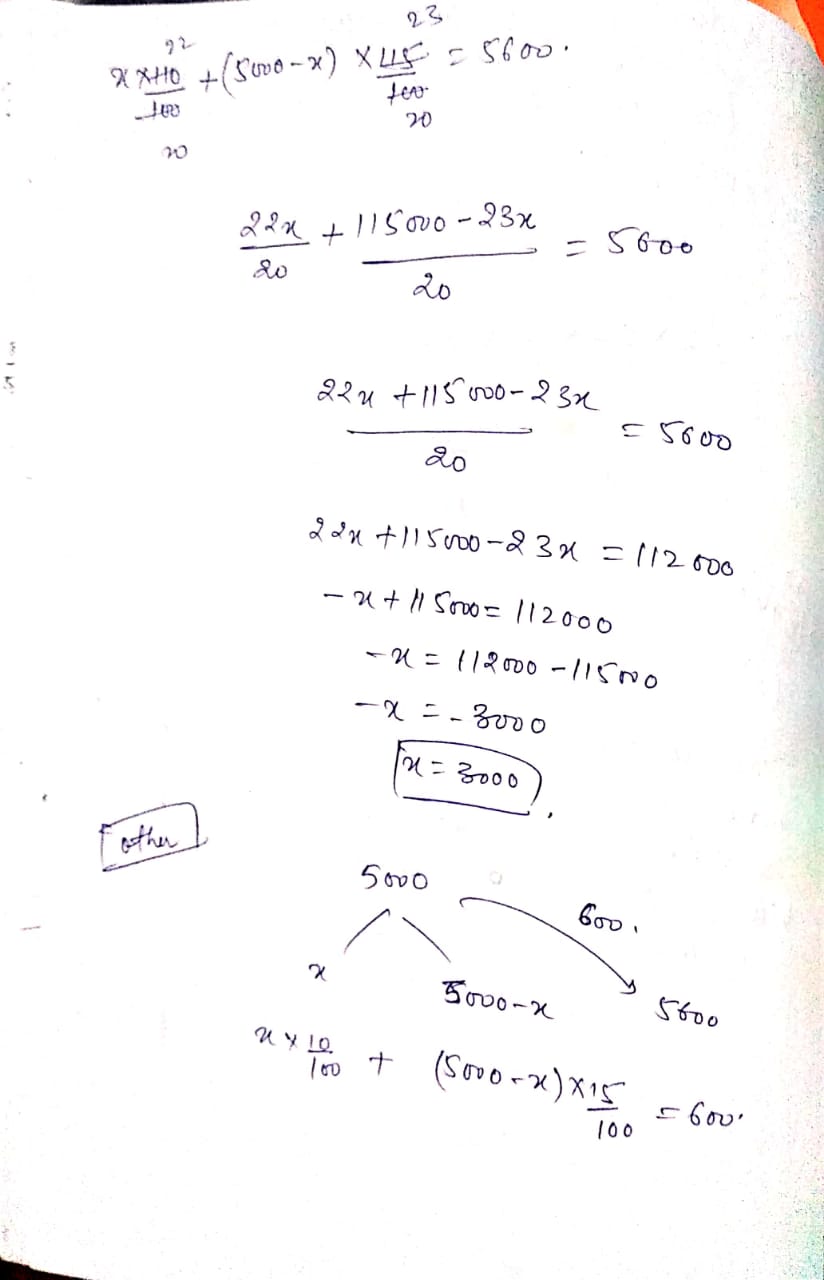 22 23
x × 110/100 + (5000 - x) × 115/100 = 5600.
20 20
22x/20 + (115000 - 23x)/20 = 5600
(22x + 115000 - 23x)/20 = 5600
22x + 115000 - 23x = 112000
-x + 115000 = 112000
-x = 112000 - 115000
-x = -3000
x = 3000
other
5000 600.
x 5000-x 5600
x × 10/100 + (5000-x) × 15/100 = 600.